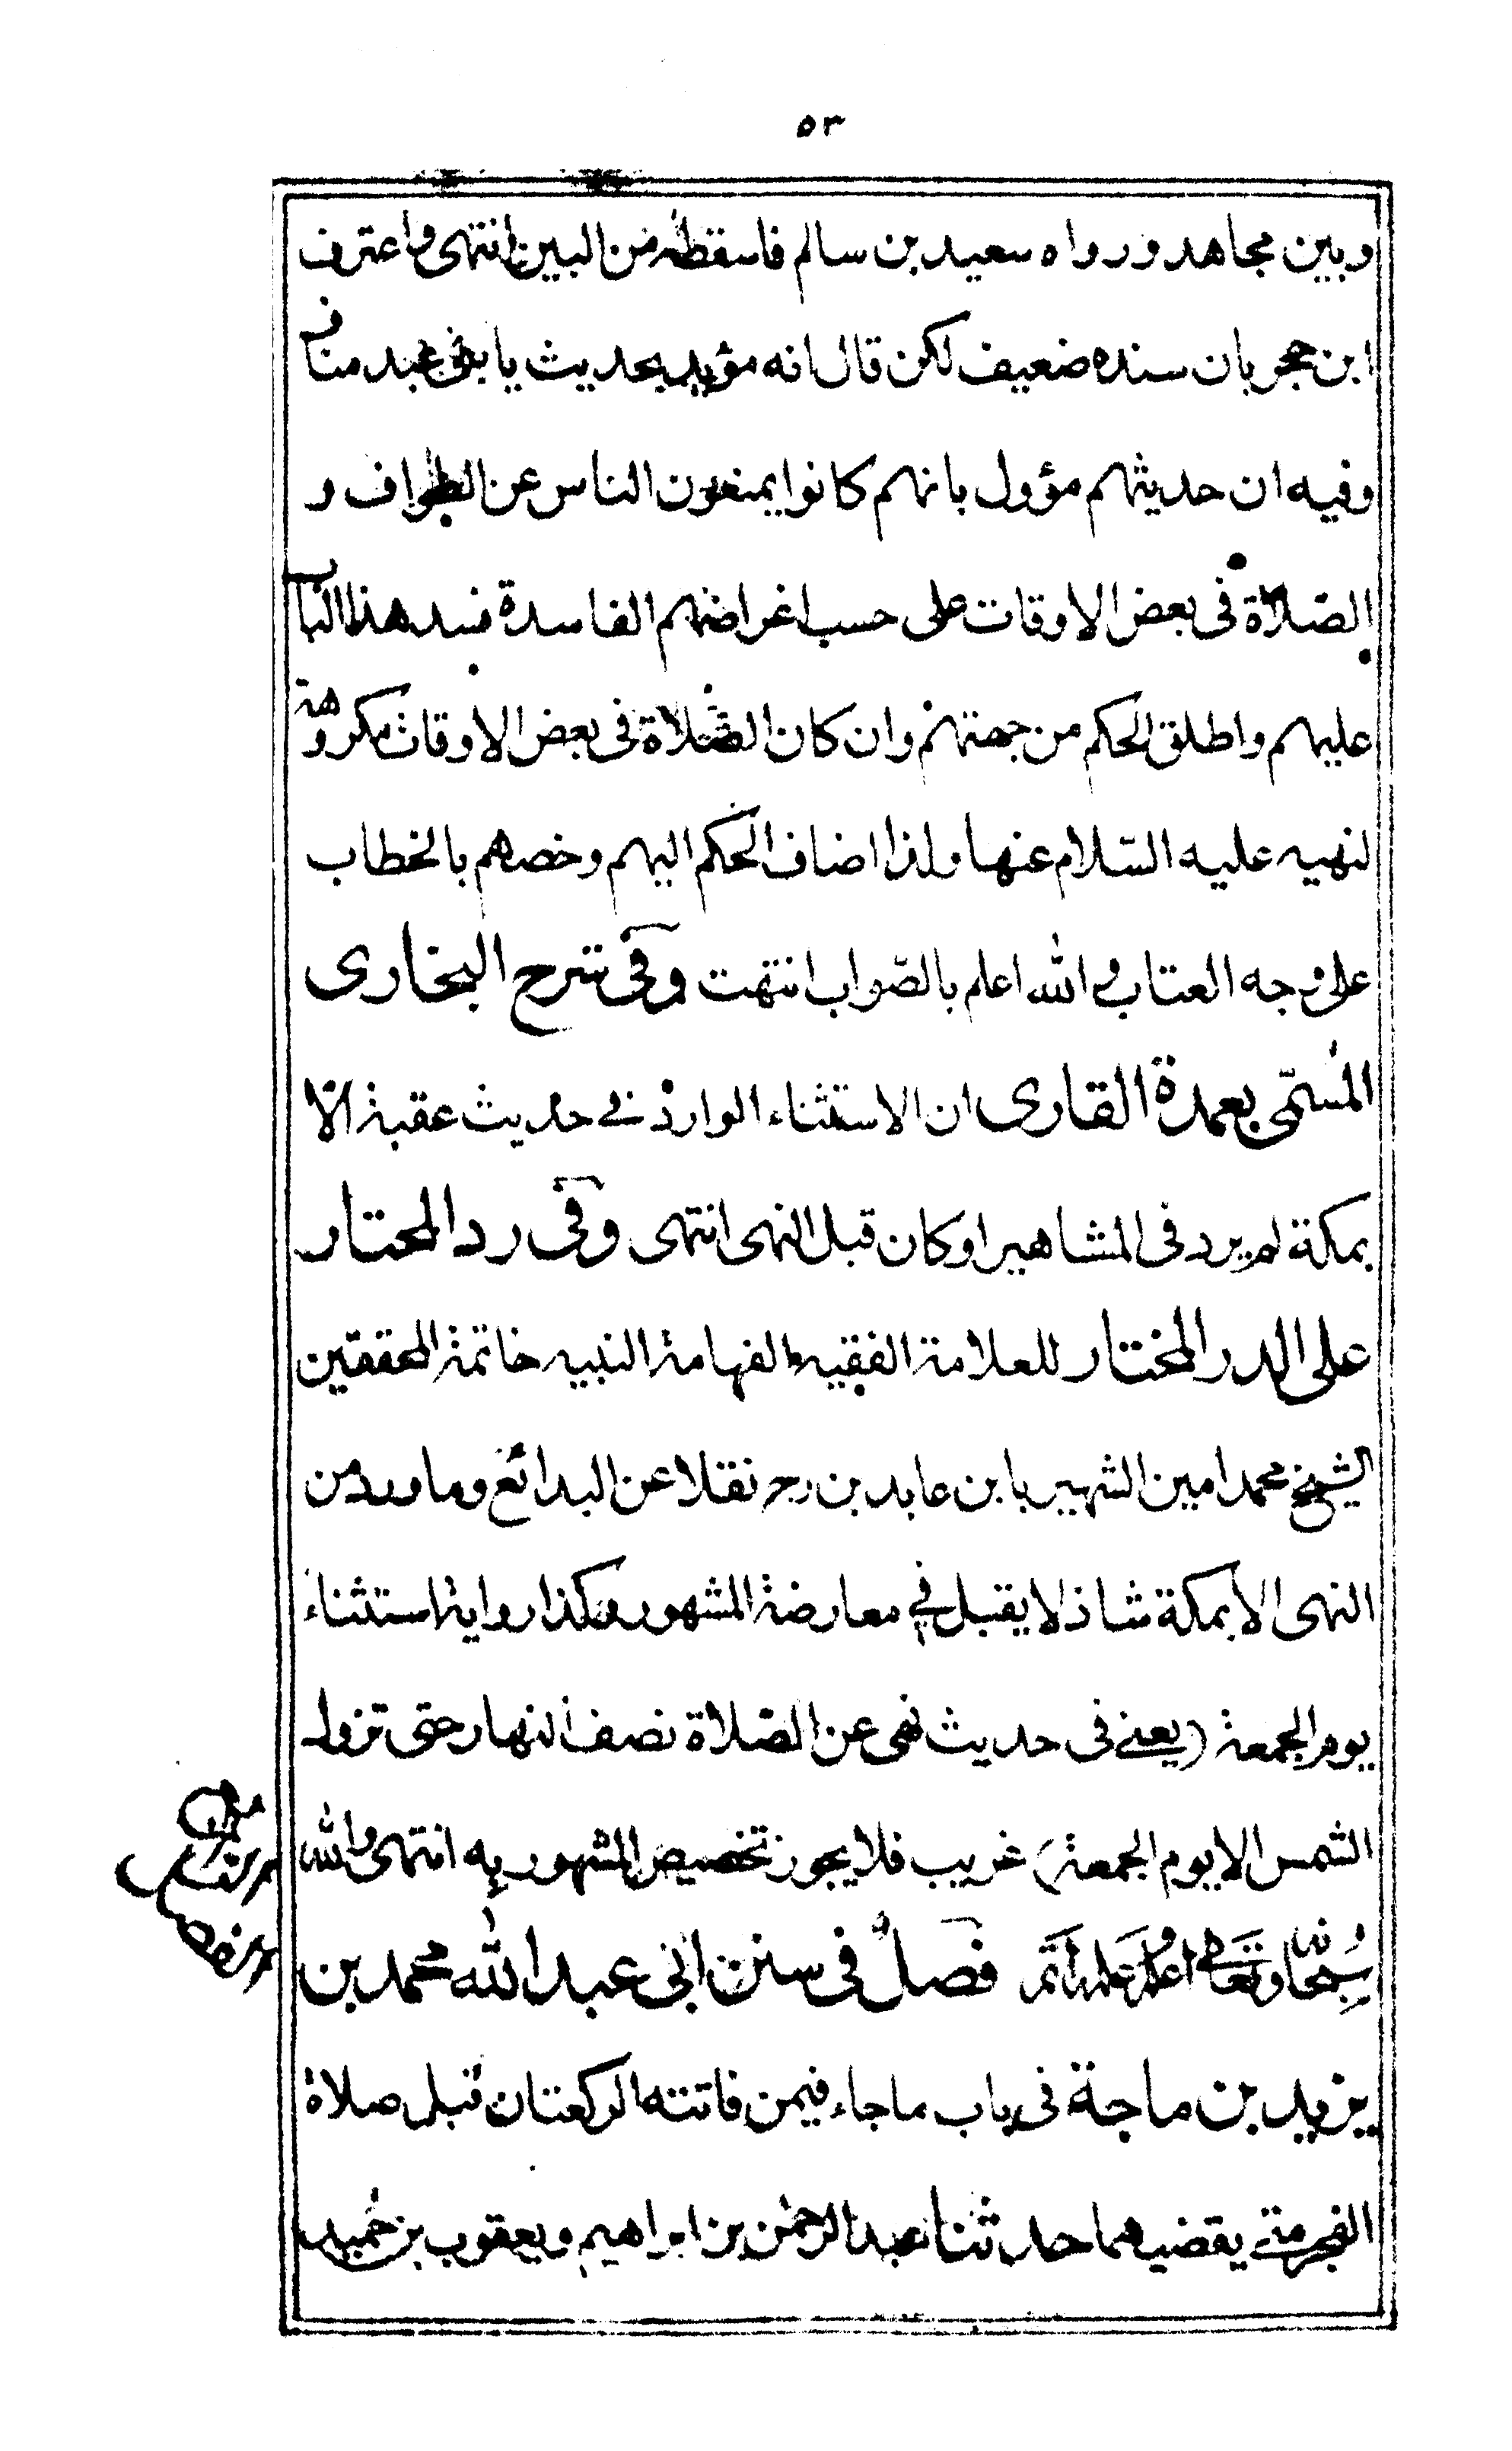 ٥٣
وبين مجاهد ورواه سعيد بن سالم فاسقطه من البين انتهى واعترف
ابن حجر بان سنده ضعيف لكن قال انه مؤيد بحديث يا بنى عبد مناف
وفيه ان حديثهم مؤول بانهم كانوا يمنعون الناس عن الطواف و
الصّلاة فى بعض الاوقات على حسب اغراضهم الفاسدة فسد هذا الباب
عليهم واطلق الحكم من جهتهم وان كان الصّلاة فى بعض الاوقات مكروهة
لنهيه عليه السّلام عنها ولذا اضاف الحكم اليهم وخصهم بالخطاب
على وجه العتاب والله اعلم بالصّواب انتهت وفى شرح البخارى
المسمّى بعمدة القارى ان الاستثناء الوارد فى حديث عقبة الّا
بمكة لم يرد فى المشاهير او كان قبل النهى انتهى وفى رد المحتار
على الدر المختار للعلامة الفقيه الفهامة النبيه خاتمة المحققين
الشيخ محمد امين الشهير بابن عابدين رح نقلا عن البدائع وما ورد من
النهى الا بمكة شاذ لا يقبل فى معارضة المشهور وكذا رواية استثناء
يوم الجمعة (يعنى فى حديث نهى عن الصّلاة نصف النهار حتى تزول
الشمس الا يوم الجمعة) غريب فلا يجوز تخصيص المشهور به انتهى والله
سُبحانه وتعالى اعلم علمه اتم فصل فى سنن ابى عبد الله محمد بن
يزيد بن ماجة فى باب ما جاء فيمن فاتته الركعتان قبل صلاة
الفجر متى يقضيهما حدثنا عبد الرحمن بن ابراهيم ويعقوب بن حميد